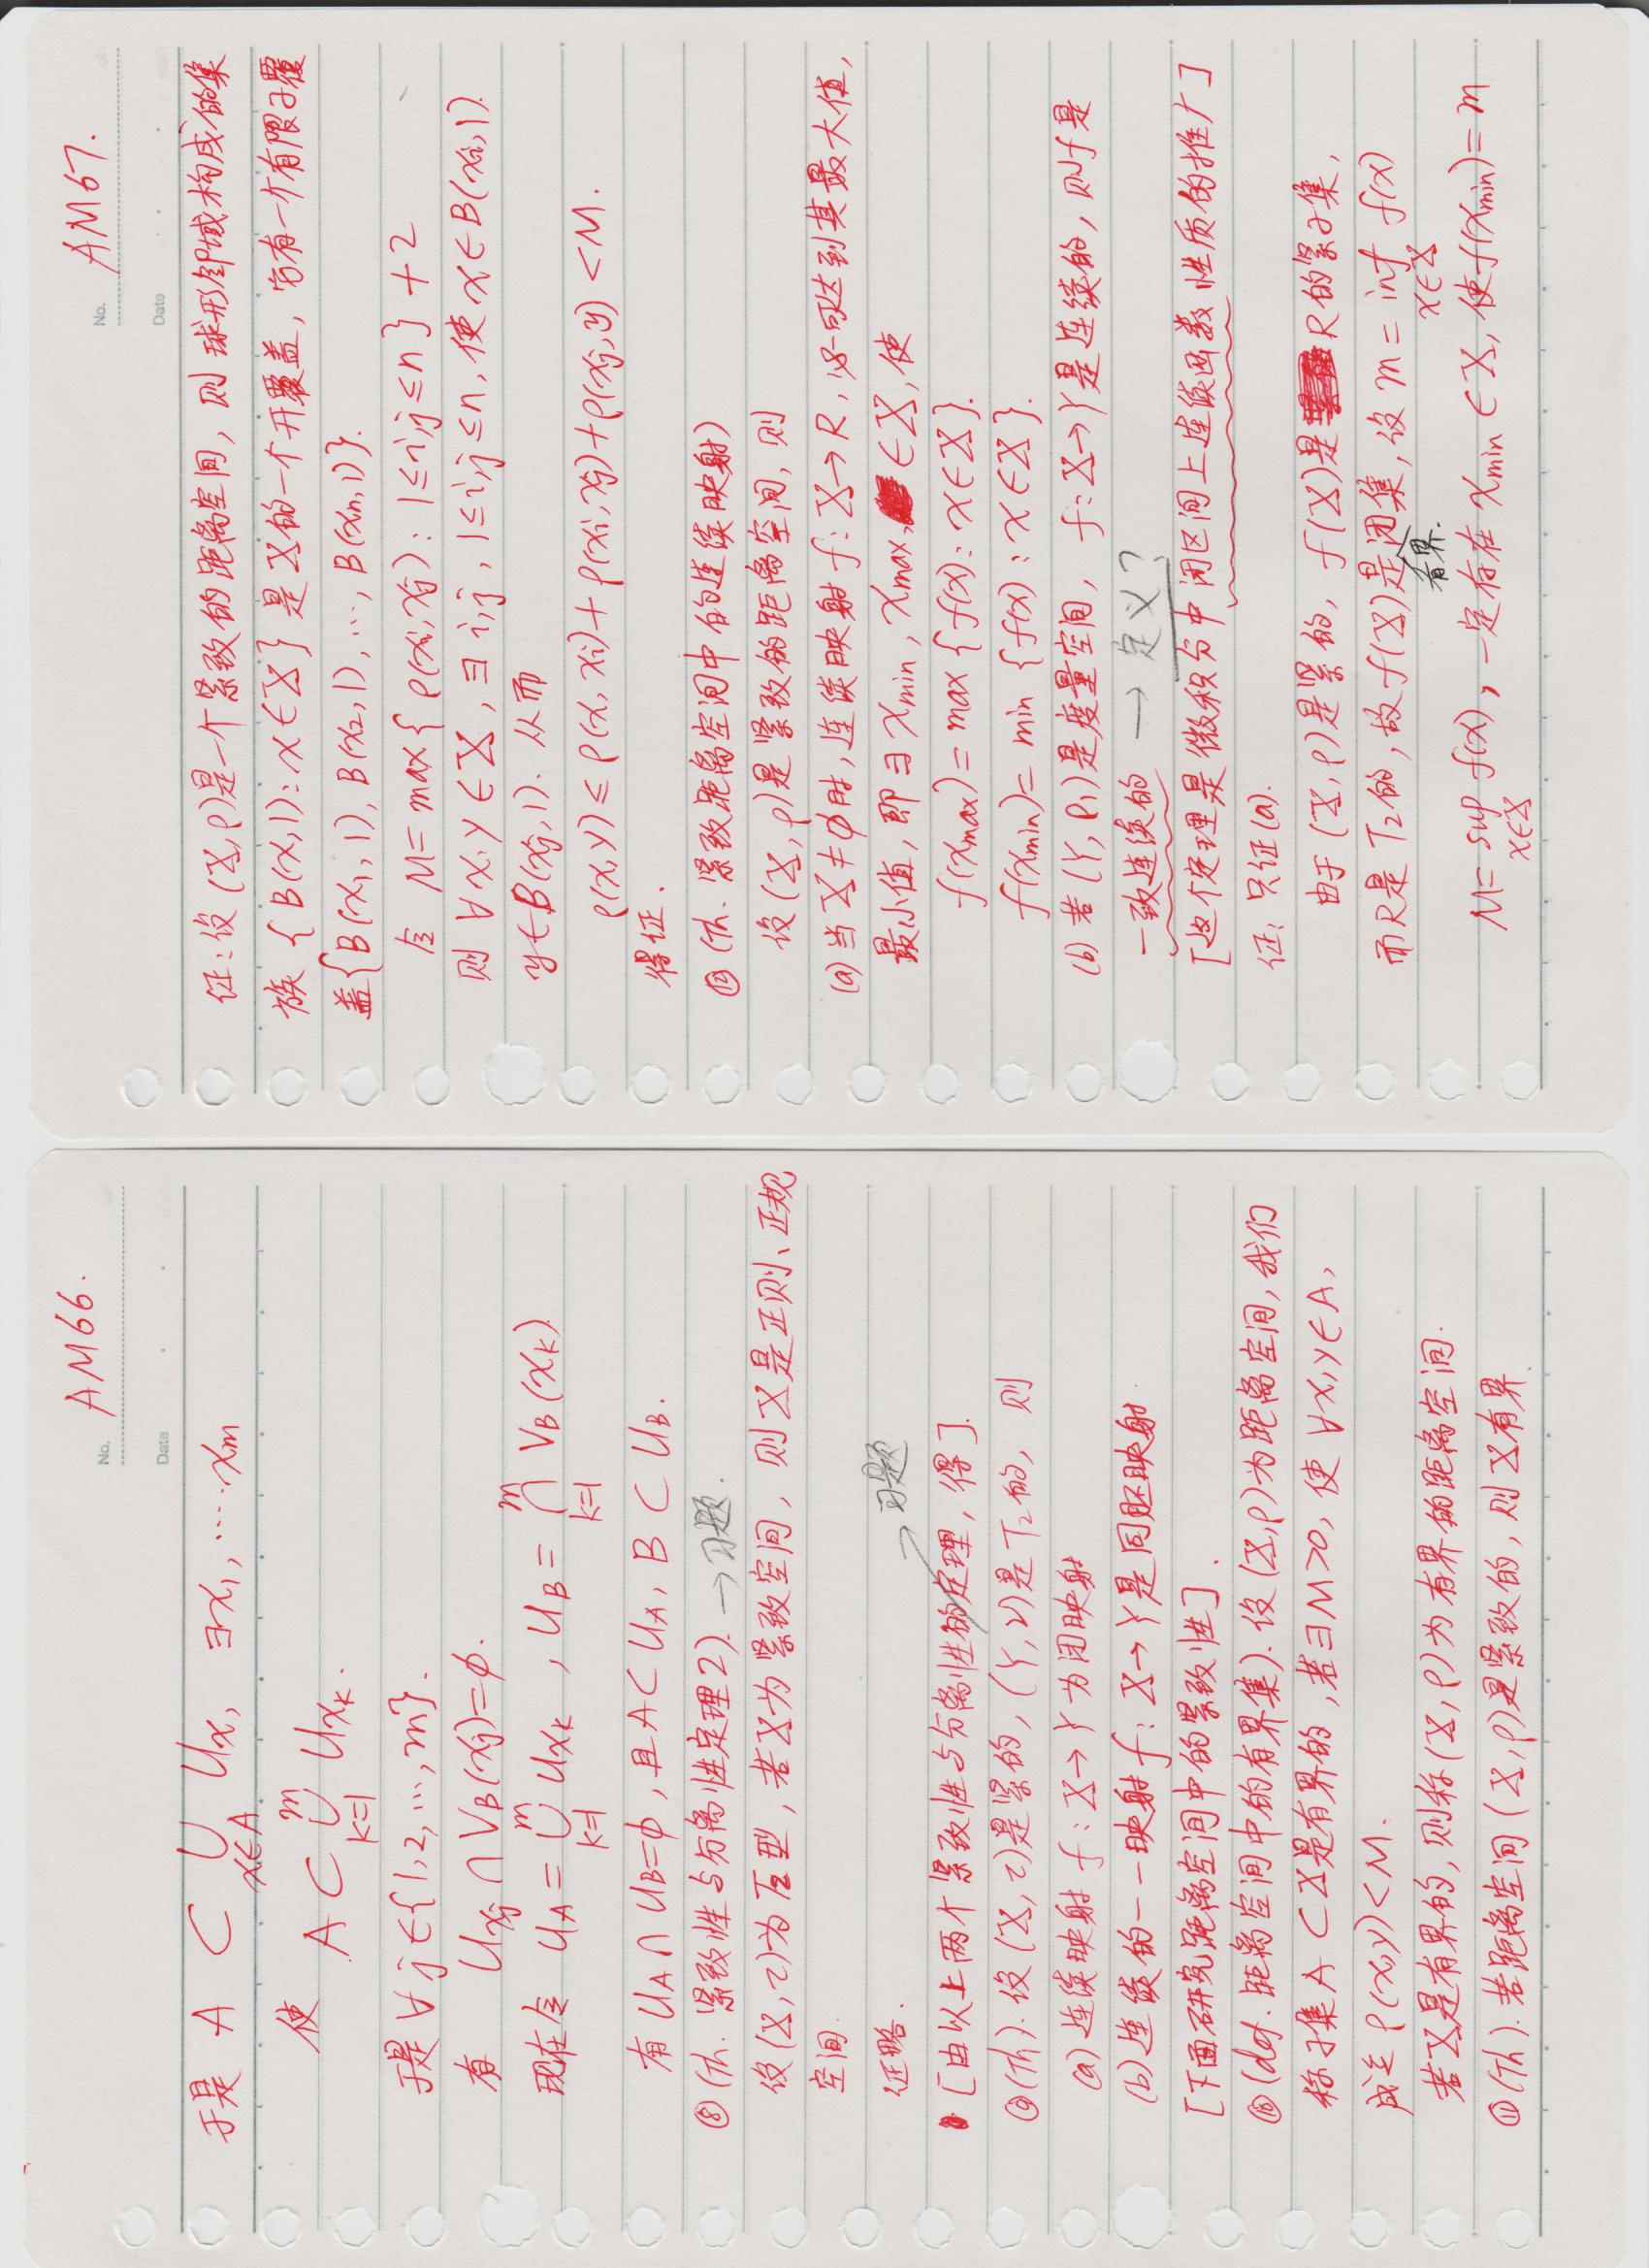 No. AM66.
Date
于是 A ⊂ ∪_{x∈A} U_x, ∃x₁, ⋯⋯ x_m
使 A ⊂ ∪_{k=1}^{m} U_{x_k}.
于是 ∀ j ∈ {1, 2, …, m}.
有 U_{x_j} ∩ V_B(x_j) = ϕ.
现在令 U_A = ∪_{k=1}^{m} U_{x_k} , U_B = ∩_{k=1}^{m} V_B(x_k)
有 U_A ∩ U_B = ϕ , 且 A ⊂ U_A, B ⊂ U_B.
⑧ (Th. 紧致性与分离性定理2). → 习题.
设(X, τ)为T₂型, 若X为紧致空间, 则X是正则、正规
空间.
证略.
→ 习题
[由以上两个紧致性与分离性的定理, 得].
⑨(Th). 设(X, τ)是紧的, (Y, ν)是T₂的, 则
(a) 连续映射 f : X→Y 为闭映射
(b) 连续的一一映射 f : X→Y 是同胚映射.
[下面研究距离空间中的紧致性].
⑩ (def. 距离空间中的有界集). 设(X, ρ)为距离空间, 我们
称子集A ⊂ X是有界的, 若∃M>0, 使 ∀x, y ∈ A,
成立 ρ(x, y) < M.
若X是有界的, 则称(X, ρ)为有界的距离空间.
⑪(Th). 若距离空间(X, ρ)是紧致的, 则X有界.
No. AM67.
Date
证: 设(X, ρ)是一个紧致的距离空间, 则球形邻域构成的集
族 {B(x, 1): x ∈ X} 是X的一个开覆盖, 它有一个有限子覆
盖{B(x₁, 1), B(x₂, 1), …, B(x_n, 1)}.
令 M = max{ρ(x_i, x_j): 1≤i,j≤n} + 2
则 ∀x, y ∈ X, ∃ i,j, 1≤i,j≤n, 使 x ∈ B(x_i, 1).
y ∈ B(x_j, 1). 从而
ρ(x, y) ≤ ρ(x, x_i) + ρ(x_i, x_j) + ρ(x_j, y) < M.
得证.
⑫ (Th. 紧致距离空间中的连续映射)
设(X, ρ)是紧致的距离空间, 则
(a) 当X ≠ ϕ时, 连续映射 f: X→R, 必可达到其最大值,
最小值, 即∃ x_min, x_max, ∈ X, 使
f(x_max) = max {f(x): x ∈ X}.
f(x_min) = min {f(x): x ∈ X}.
(b) 若(Y, ρ₁)是度量空间, f: X→Y是连续的, 则f是
一致连续的 → 定义?
[这个定理是微积分中闭区间上连续函数性质的推广]
证: 只证(a).
由于(X, ρ)是紧的, f(X)是R的紧子集,
而R是T₂的, 故f(X)是有界.闭集, 设 m = inf_{x∈X} f(x)
M = sup_{x∈X} f(x), 一定存在 x_min ∈ X, 使f(x_min) = m